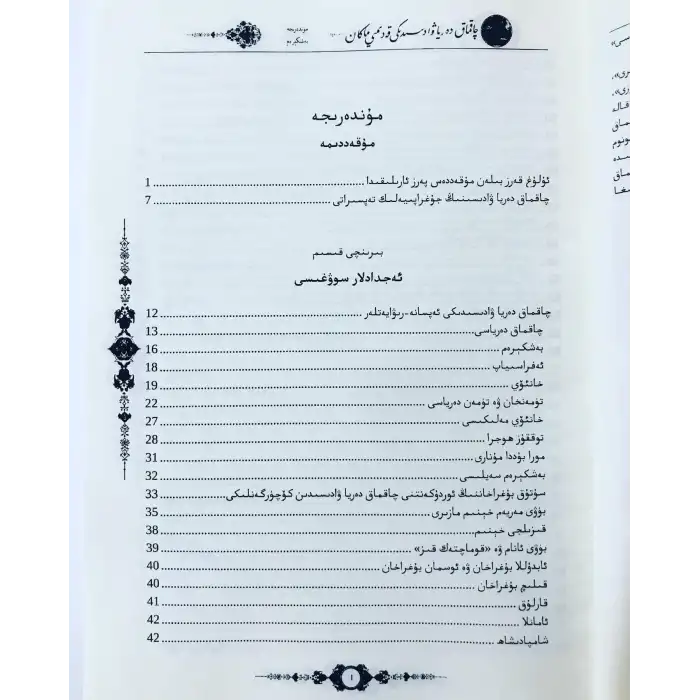 چاقماق دەريا ۋادىسىدىكى قەدىمىي ماكان
مۇندەرىجە
بەشكېرەم
مۇندەرىجە
مۇقەددىمە
ئۇلۇغ قەرز بىلەن مۇقەددەس پەرز ئارىلىقىدا ........ 1
چاقماق دەريا ۋادىسىنىڭ جۇغراپىيەلىك تەپسىراتى ........ 7
بىرىنچى قىسىم
ئەجدادلار سوۋغىسى
چاقماق دەريا ۋادىسىدىكى ئەپسانە-رىۋايەتلەر ........ 12
چاقماق دەرياسى ........ 13
بەشكېرەم ........ 16
ئەفراسىياپ ........ 18
خانئۆي ........ 19
تۈمەنخان ۋە تۈمەن دەرياسى ........ 22
خانئۆي مەلىكىسى ........ 27
توققۇز ھوجرا ........ 28
مورا بۇددا مۇنارى ........ 31
بەشكېرەم سەيلىسى ........ 32
سۇتۇق بۇغراخاننىڭ ئوردۇكەنتنى چاقماق دەريا ۋادىسىدىن كۆچۈرگەنلىكى ........ 33
بۈۋى مەريەم خېنىم مازىرى ........ 35
قىزىلجى خېنىم ........ 38
بۈۋى ئانام ۋە «قوماچتەك قىز» ........ 39
ئابدۇللا بۇغراخان ۋە ئوسمان بۇغراخان ........ 40
قىلىچ بۇغراخان ........ 40
قارلۇق ........ 41
ئامانلا ........ 42
شامپادىشاھ ........ 42
1